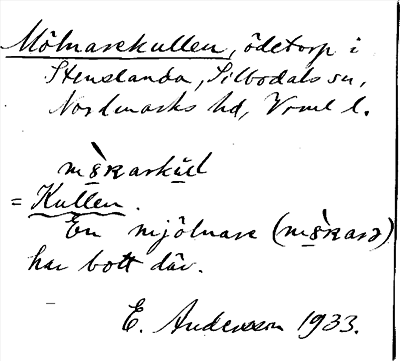 Mölnarekullen, ödetorp i
Stenslanda, Silbodals sn,
Nordmarks hd, Vrml l.
= Kullen.
En mjölnare
har bott där.
E. Andersson 1933.